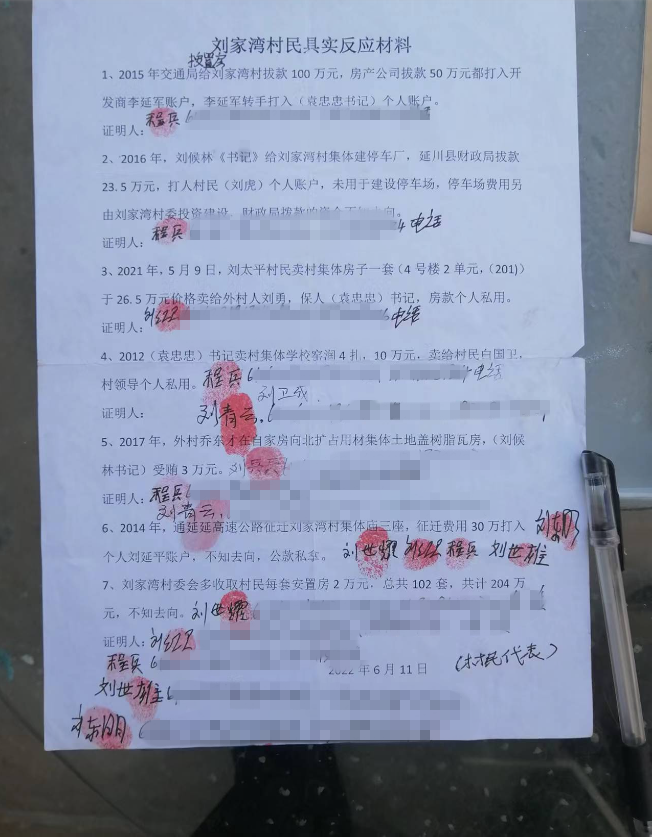 刘家湾村民具实反应材料
安置房
1、2015年交通局给刘家湾村拔款100万元，房产公司拔款50万元都打入开
发商李延军账户，李延军转手打入（袁忠忠书记）个人账户。
证明人：程兵6
2、2016年，刘候林《书记》给刘家湾村集体建停车厂，延川县财政局拔款
23.5万元，打人村民（刘虎）个人账户，未用于建设停车场，停车场费用另
由刘家湾村委投资建设，财政局拨款的资金不知去向。
证明人：程兵 4电话
3、2021年，5月9日，刘太平村民卖村集体房子一套（4号楼2单元，（201））
于26.5万元价格卖给外村人刘勇，保人（袁忠忠）书记，房款个人私用。
证明人： 电话
4、2012（袁忠忠）书记卖村集体学校窑洞4扎，10万元，卖给村民白国卫，
村领导个人私用。程兵6 电话
刘卫成
证明人： 刘青云
5、2017年，外村乔东才在自家房向北扩占用材集体土地盖树脂瓦房，（刘候
林书记）受贿3万元。
证明人：程兵
刘青云
6、2014年，通延延高速公路征迁刘家湾村集体庙三座，征迁费用30万打入
个人刘延平账户，不知去向，公款私拿。刘世耀 程兵 刘世雄 刘东明
7、刘家湾村委会多收取村民每套安置房2万元，总共102套，共计204万
元，不知去向。刘世耀
证明人：
程兵6 2022年6月11日 （村民代表）
刘世雄6
刘东明